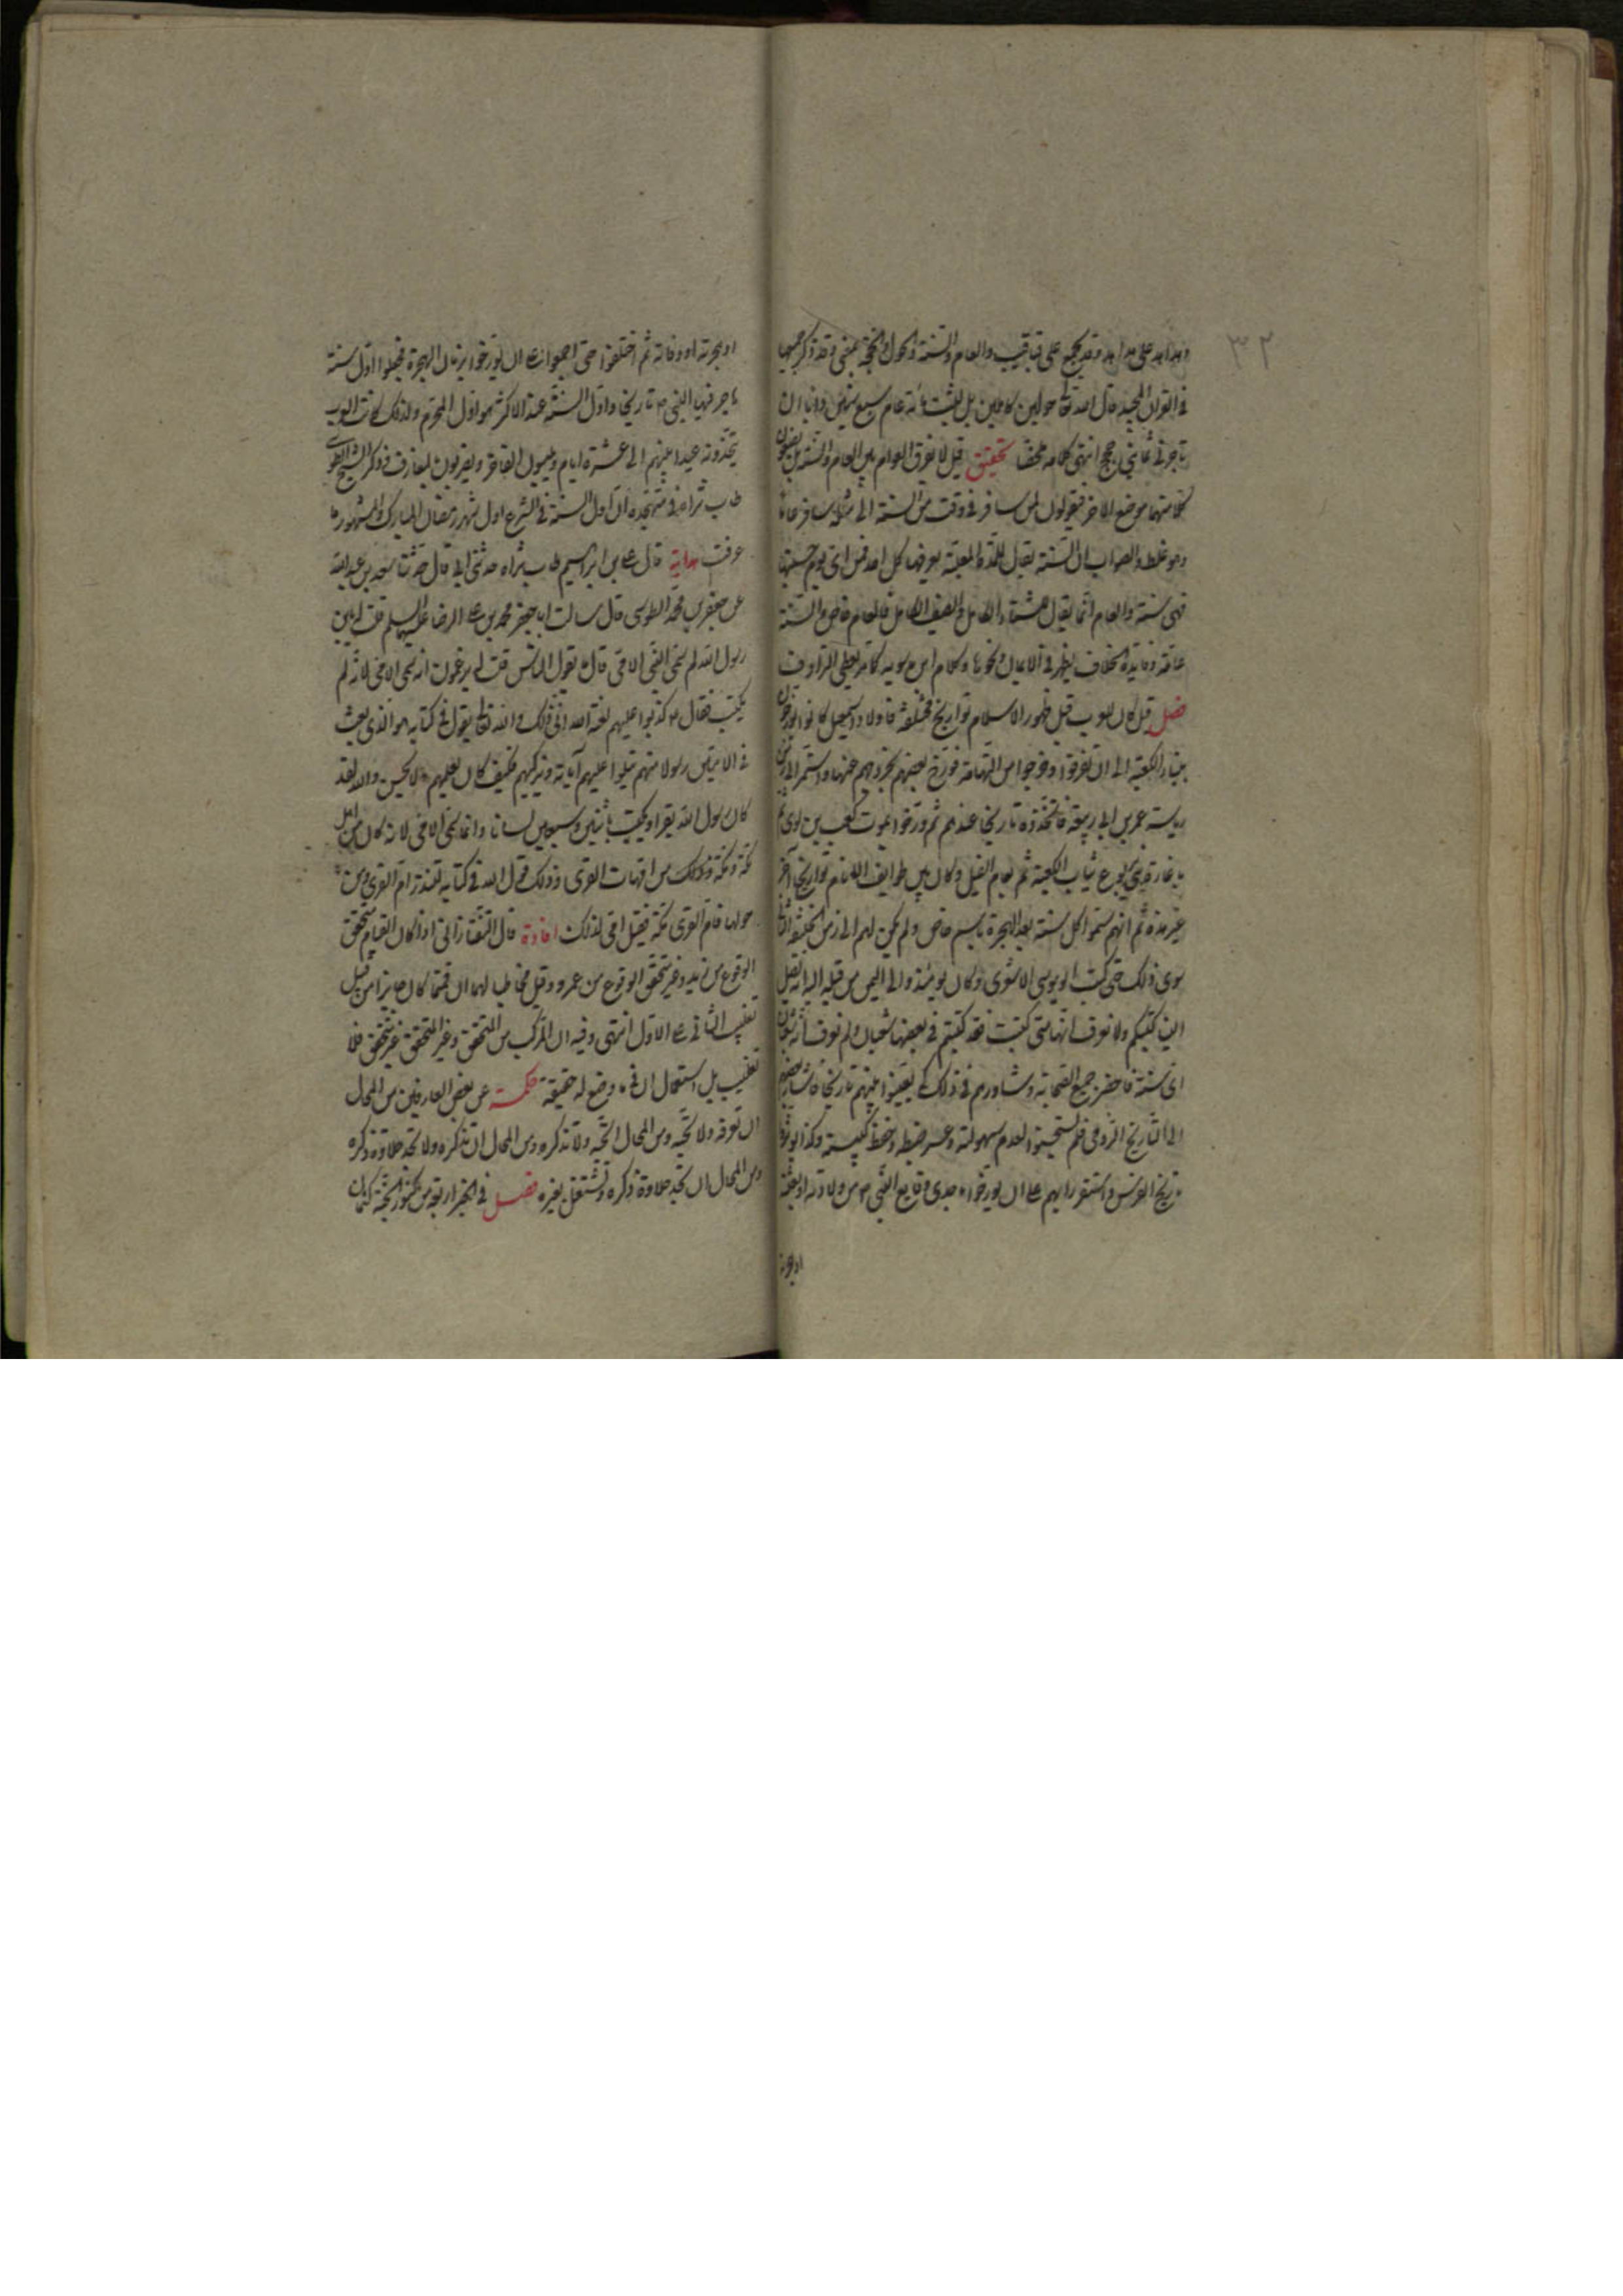 ٣٢
في القران المجيد قال الله تعالى حولين كاملين بل لبثت مائة عام سبع سنين دابا ان
تاجرني ثماني حجج انتهى كلامه ملخصا تحقيق قيل لا يفرق العوام بين العام والسنة بل يضعون
كلا منهما موضع الاخر فيقولون لمن سافر في وقت من السنة الى مثله سافر عاما
وهو غلط والصواب ان السنة يقال للمدة المعينة يعرفها كل احد فمن اى يوم حسبتها
فهي سنة والعام انما يقال لشتاء الكامل والصيف الكامل فالعام خاص والسنة
عامة وفايدة الخلاف يظهر في الاعمال ونحوها وكلام ابن سويه كامر يعطى الترادف
فصل قيل كان للعرب قبل ظهور الاسلام تواريخ مختلفة فاولاد اسمعيل كانوا يؤرخون
ببناء الكعبة الى ان تفرقوا وخرجوا من التهامة فورخ بعضهم بخروجهم عنها واستمر الى زمن
رياسة عمر بن ابى ربيعة فاتخذوه تاريخا عندهم ثم ورخوا بموت كعب بن لوى ثم
ثياب الكعبة ثم بعام الفيل وكان بين طوايف الانام تواريخ اخر
غير هذه ثم انهم سموا كل سنة بعد الهجرة باسم خاص ولم يكن لهم الى زمن الخليفة الثاني
سوى ذلك حتى كتب ابو موسى الاشعرى وكان يومئذ والى اليمن من قبله اليه انه تصل
الينا كتبكم ولا نعرف انها متى كتبت فقد كتبتم في بعضها شعبان ولم نعرف انه شعبان
اى سنة فاحضر جميع الصحابة وشاورهم في ذلك كي يعينوا بينهم تاريخا فاشار بعضهم
الى التاريخ الرومي فلم يستحسنوا لعدم سهولته وعسر ضبطه وحفظ كبيسته وكذا لم يورخوا
تاريخ الفرس واستقر رايهم على ان يورخوا باحدى وقايع النبي ص من ولادته او بعثته
او هجرته
او هجرته او وفاته ثم اختلفوا حتى اجمعوا على ان يورخوا بزمان الهجرة فجعلوا اول سنة
هاجر فيها النبي ص تاريخا واول السنة عند الاكثر هو اول المحرم ولذلك كانت العرب
يتخذونه عيدا بينهم الى عشرة ايام ويلبسون الفاخر ويضربون المعازف وذكر الشيخ الطوسى
طاب ثراه في متهجده ان اول السنة في الشرع اول شهر رمضان المبارك والمشهور ما
عرفت هداية قال على بن ابرهيم طاب ثراه حدثني ابي قال حدثنا سعد بن عبد الله
عن جعفر بن محمد الطوسى قال سالت ابا جعفر محمد بن على الرضا عليهما السلم قلت له يابن
رسول الله لم سمى النبي الامي قال ما يقول الناس قلت له يزعمون انه سمى الامي لانه لم
يكتب فقال ع كذبوا عليهم لعنة الله انى ذلك والله تعالى يقول في كتابه هو الذى بعث
في الاميين رسولا منهم يتلوا عليهم آياته ويزكيهم فكيف كان يعلمهم ما لا يحسن والله لقد
كان رسول الله يقرا ويكتب باثنين وسبعين لسانا وانما سمى الامي لانه كان من اهل
مكة ومكة من امهات القرى وذلك قول الله في كتابه لتنذر ام القرى ومن
حولها فام القرى مكة فقيل امى لذلك افادة قال التفتازاني اذا كان القيام متحقق
الوقوع من زيد وغير متحقق الوقوع من عمرو وقيل مخاطبا لهما ان قمتما كان جايزا من قبيل
تغليب الثاني على الاول انتهى وفيه ان المركب من المتحقق وغير المتحقق غير متحقق فلا
تغليب بل استعمال ان فيما وضع له حقيقة حكمة عن بعض العارفين من المحال
ان تعرفه ولا تحبه ومن المحال ان تحبه ولا تذكره ومن المحال ان تذكره ولا تجد حلاوة ذكره
ومن المحال ان تجد حلاوة ذكره وتشتغل بغيره فصل في الخبر اربعة من كنوز الجنة كتمان